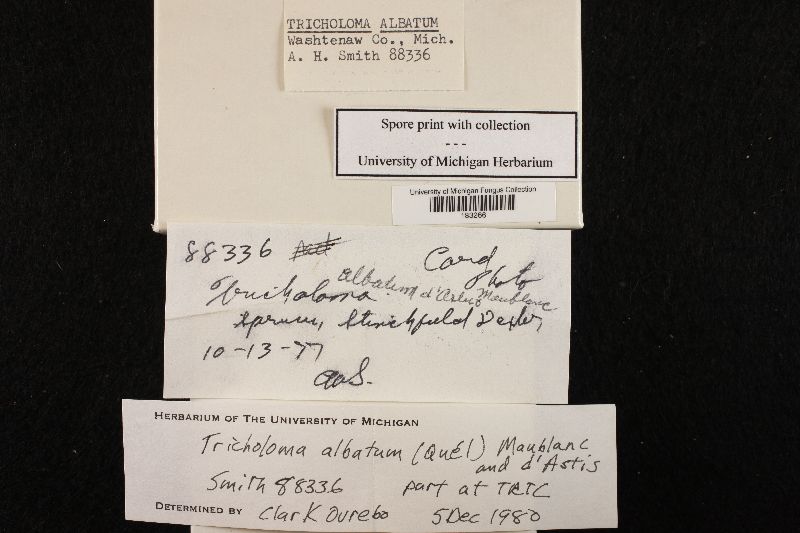 TRICHOLOMA ALBATUM
Washtenaw Co., Mich.
A. H. Smith 88336
Spore print with collection
- - -
University of Michigan Herbarium
University of Michigan Fungus Collection
183266
88336
Card
Photo
Tricholoma albatum d'Astis Maublanc
spruce, Stinchfield Dexter
10-13-77
AHS.
HERBARIUM OF THE UNIVERSITY OF MICHIGAN
Tricholoma albatum (Quél) Maublanc
and d'Astis
Smith 88336 part at TRTC
DETERMINED BY Clark Ovrebo 5 Dec 1980